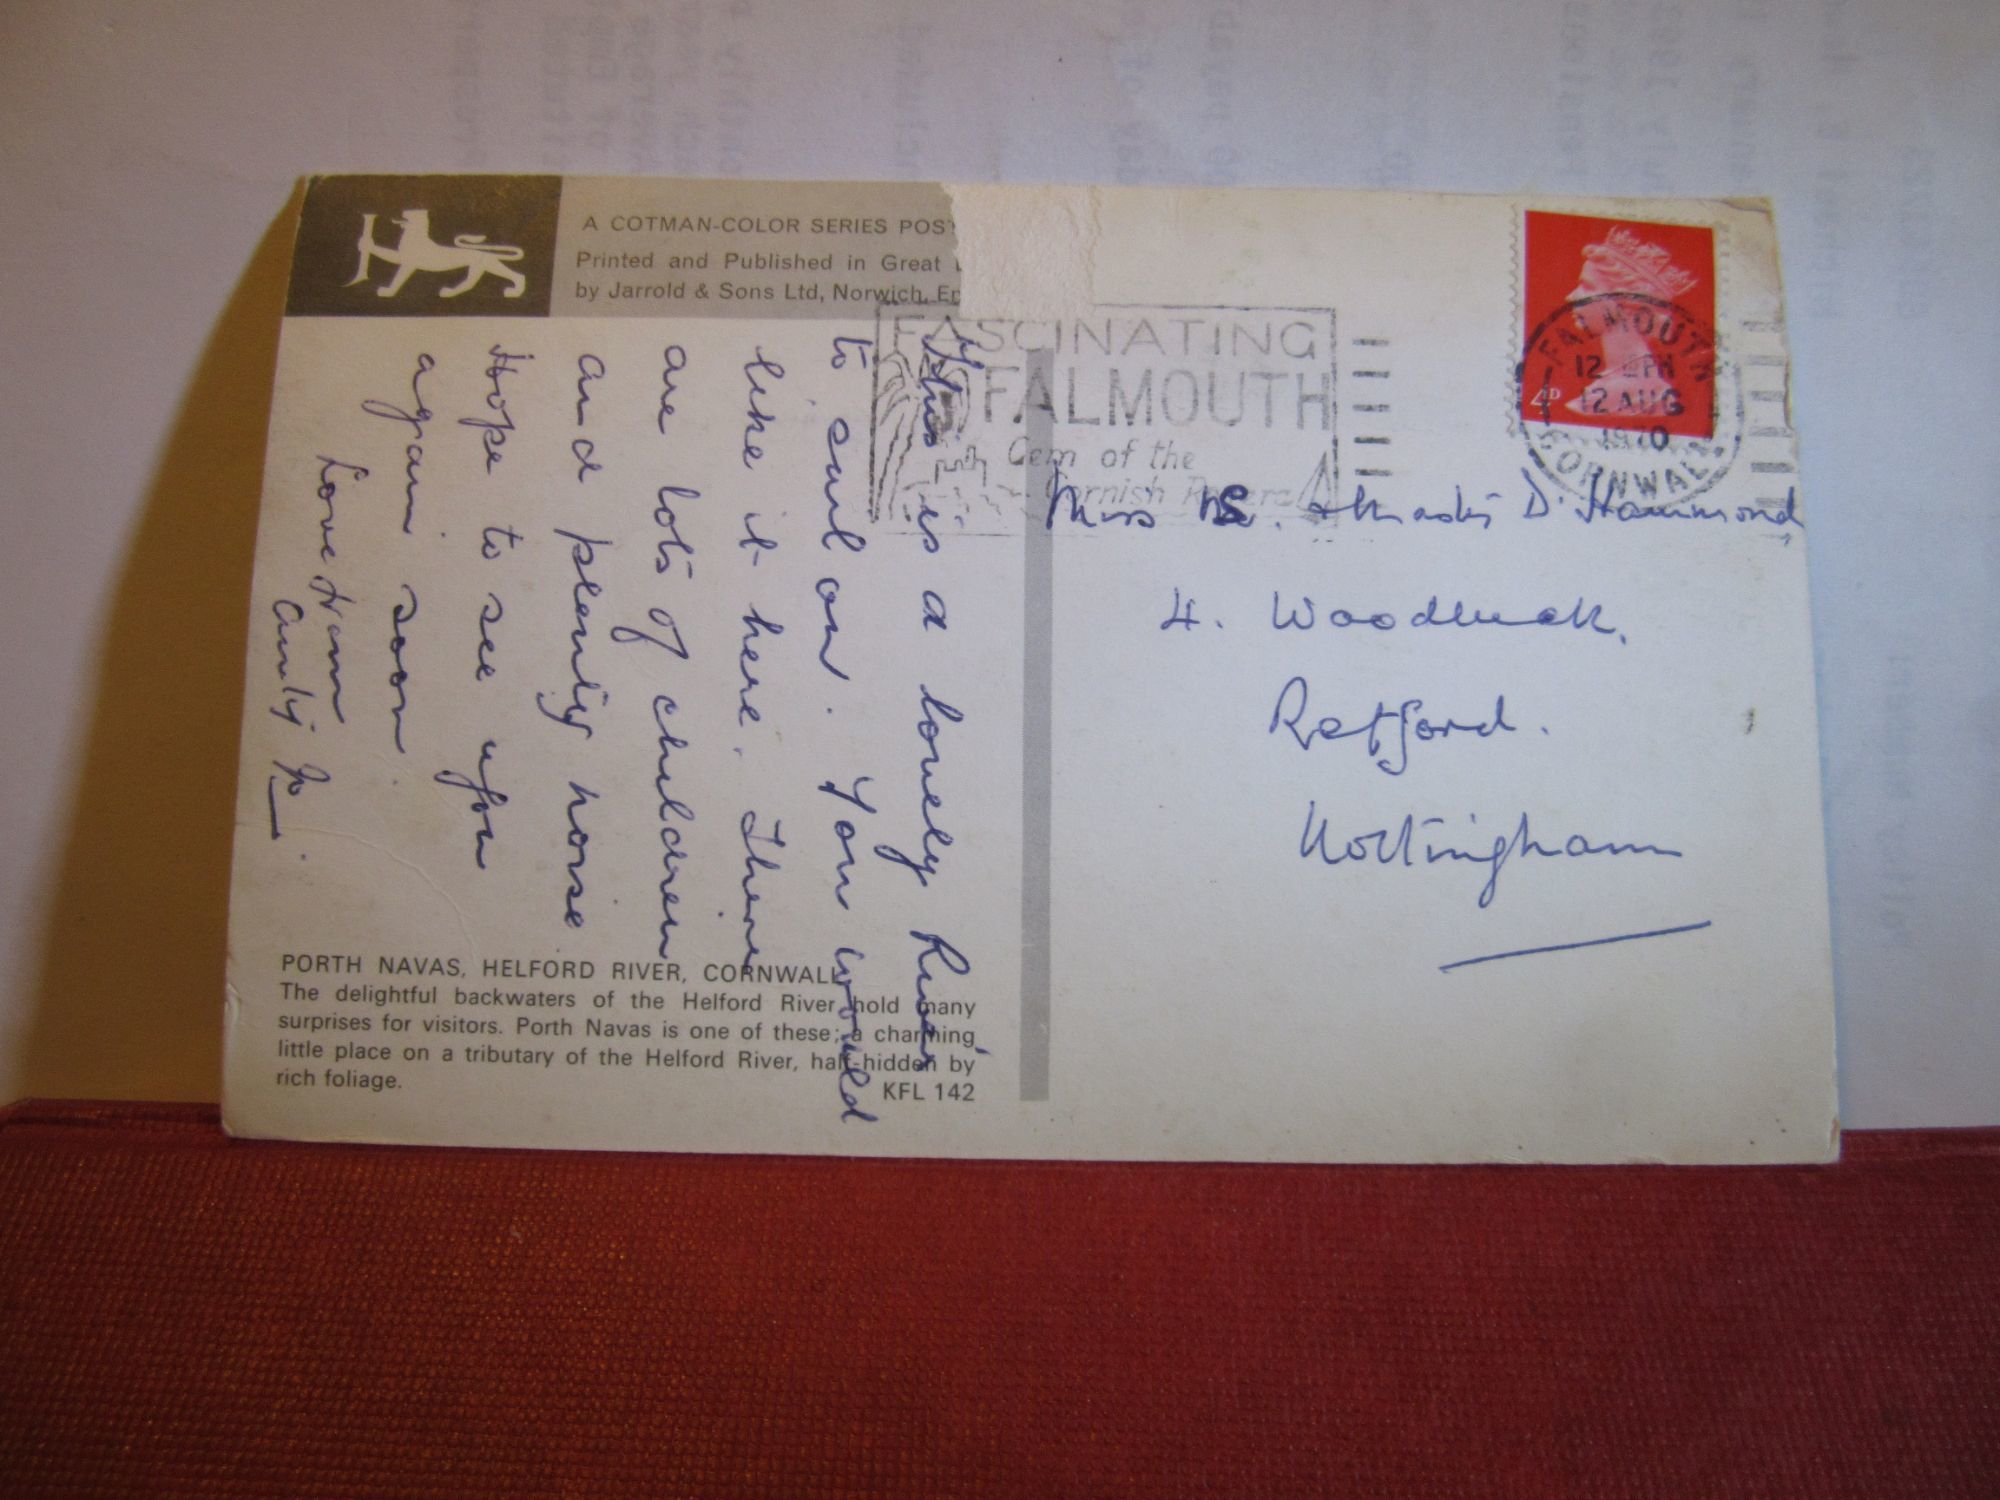 A COTMAN-COLOR SERIES POST
Printed and Published in Great
by Jarrold & Sons Ltd, Norwich, En
This is a lovely River
to sail on. You would
like it here. There
are lots of children
and plenty noise
Hope to see you
again soon.
Love from
Aunty Jo.
PORTH NAVAS, HELFORD RIVER, CORNWALL
The delightful backwaters of the Helford River hold many
surprises for visitors. Porth Navas is one of these; a charming
little place on a tributary of the Helford River, half-hidden by
rich foliage.
KFL 142
FASCINATING
FALMOUTH
Gem of the
Cornish Riviera
4D
FALMOUTH
12 AUG
1970
CORNWALL
Miss S. & Master D Hammond
4. Woodbeck,
Retford.
Nottingham